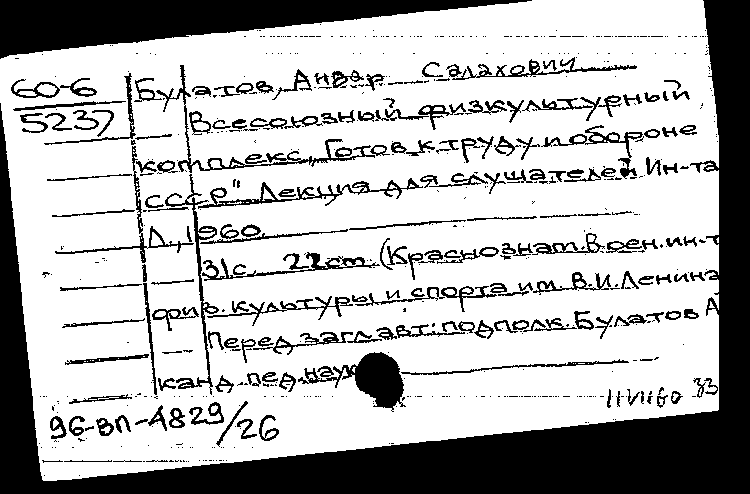 60-6
5237
Булатов, Анвар Салахович
Всесоюзный физкультурный
комплекс „Готов к труду и обороне
СССР" Лекция для слушателей Ин-та
Л., 1960.
31с. 22cm. (Краснознам. Воен. ин-т
физ. культуры и спорта им. В.И. Ленина
Перед загл. авт: подполк. Булатов А
канд. пед. наук
96-вп-4829/26
33